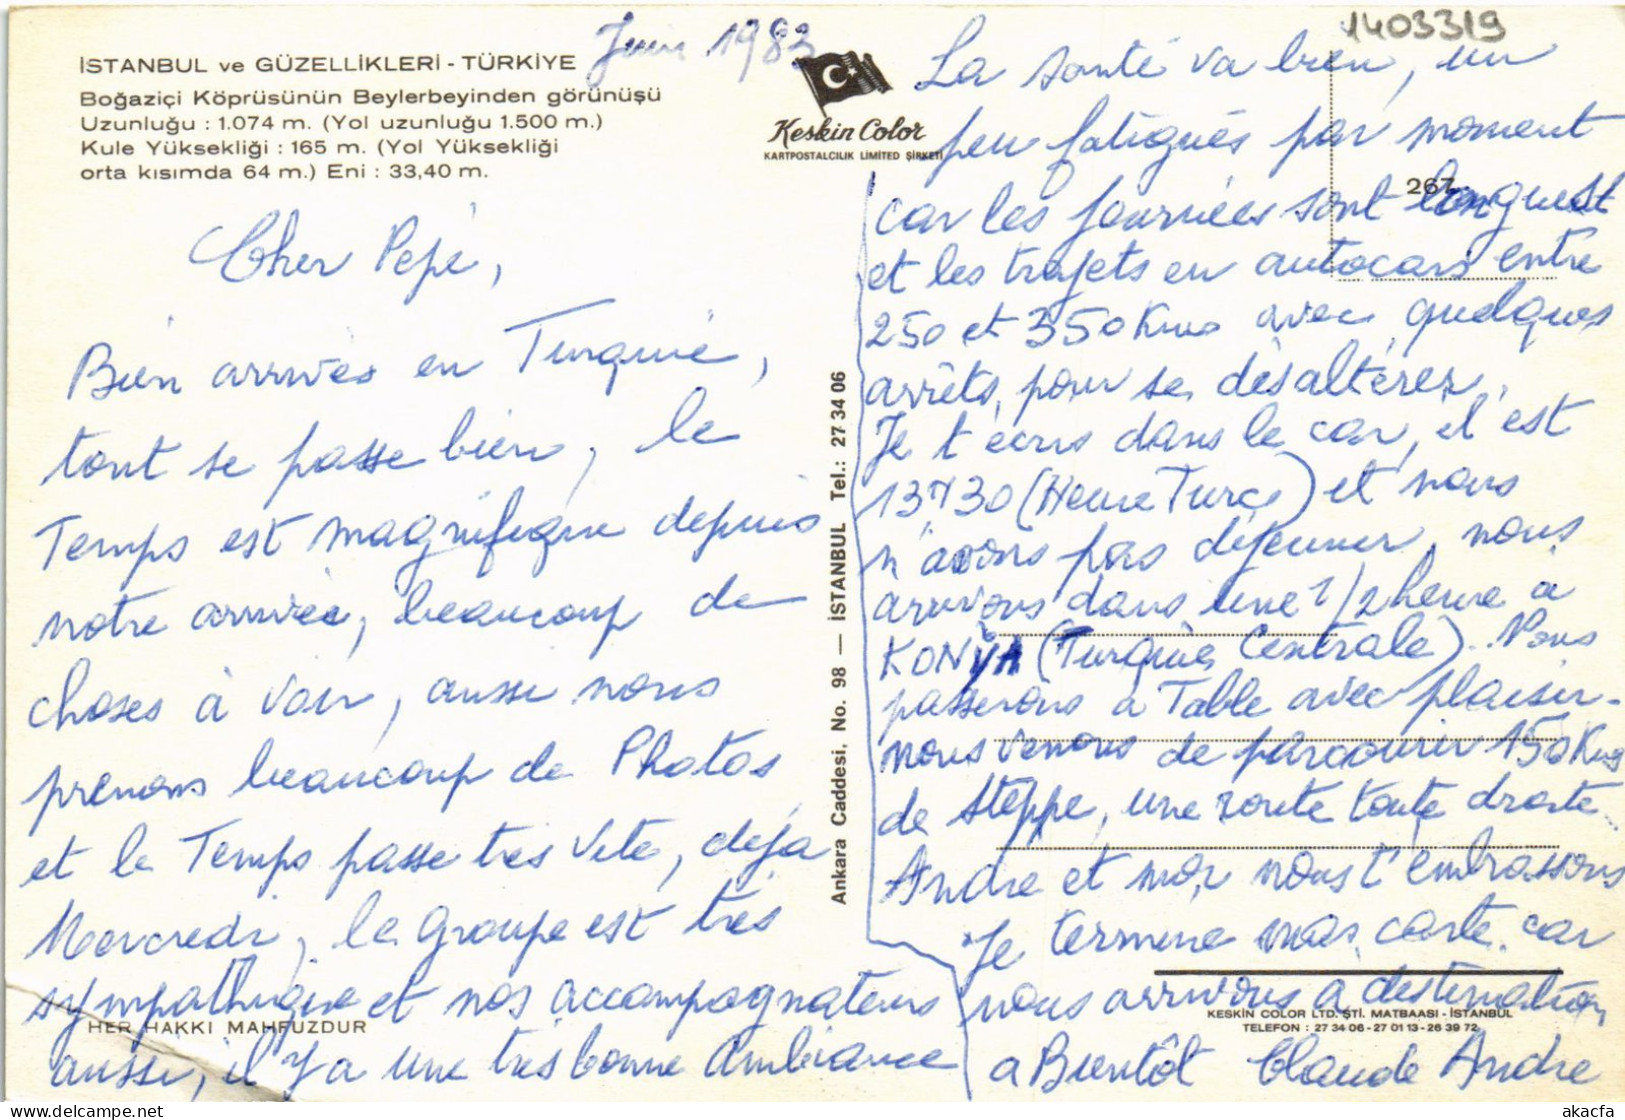 Juin 1983
1403319
İSTANBUL ve GÜZELLİKLERİ - TÜRKİYE
Boğaziçi Köprüsünün Beylerbeyinden görünüşü
Uzunluğu : 1.074 m. (Yol uzunluğu 1.500 m.)
Kule Yüksekliği : 165 m. (Yol Yüksekliği
orta kısımda 64 m.) Eni : 33,40 m.
Keskin Color
KARTPOSTALCILIK LIMITED ŞİRKETİ
267
Cher Pépé,
Bien arrivés en Turquie,
tout se passe bien, le
Temps est magnifique depuis
notre arrivée, beaucoup de
choses à voir, aussi nous
prenons beaucoup de Photos
et le Temps passe très vite, déjà
Mercredi, le groupe est très
sympathique et nos accompagnateurs
aussi, il y a une très bonne ambiance
HER HAKKI MAHFUZDUR
Ankara Caddesi, No. 98 — İSTANBUL Tel.: 27 34 06
La santé va bien, un
peu fatigués par moment
car les journées sont longues
et les trajets en autocars entre
250 et 350 Kms avec quelques
arrêts, pour se désaltérer.
Je t'écris dans le car, il est
13H30 (Heure Turc) et nous
n'avons pas déjeuner, nous
arrivons dans une 1/2 heure à
KONYA (Turquie Centrale). Nous
passerons à Table avec plaisir -
nous venons de parcourir 150 Kms
de steppe, une route toute droite...
André et moi nous t'embrassons
Je termine ma carte car
nous arrivons à destination
a Bientôt Claude André
KESKİN COLOR LTD. ŞTİ. MATBAASI - İSTANBUL
TELEFON : 27 34 06 - 27 01 13 - 26 39 72
akacfa